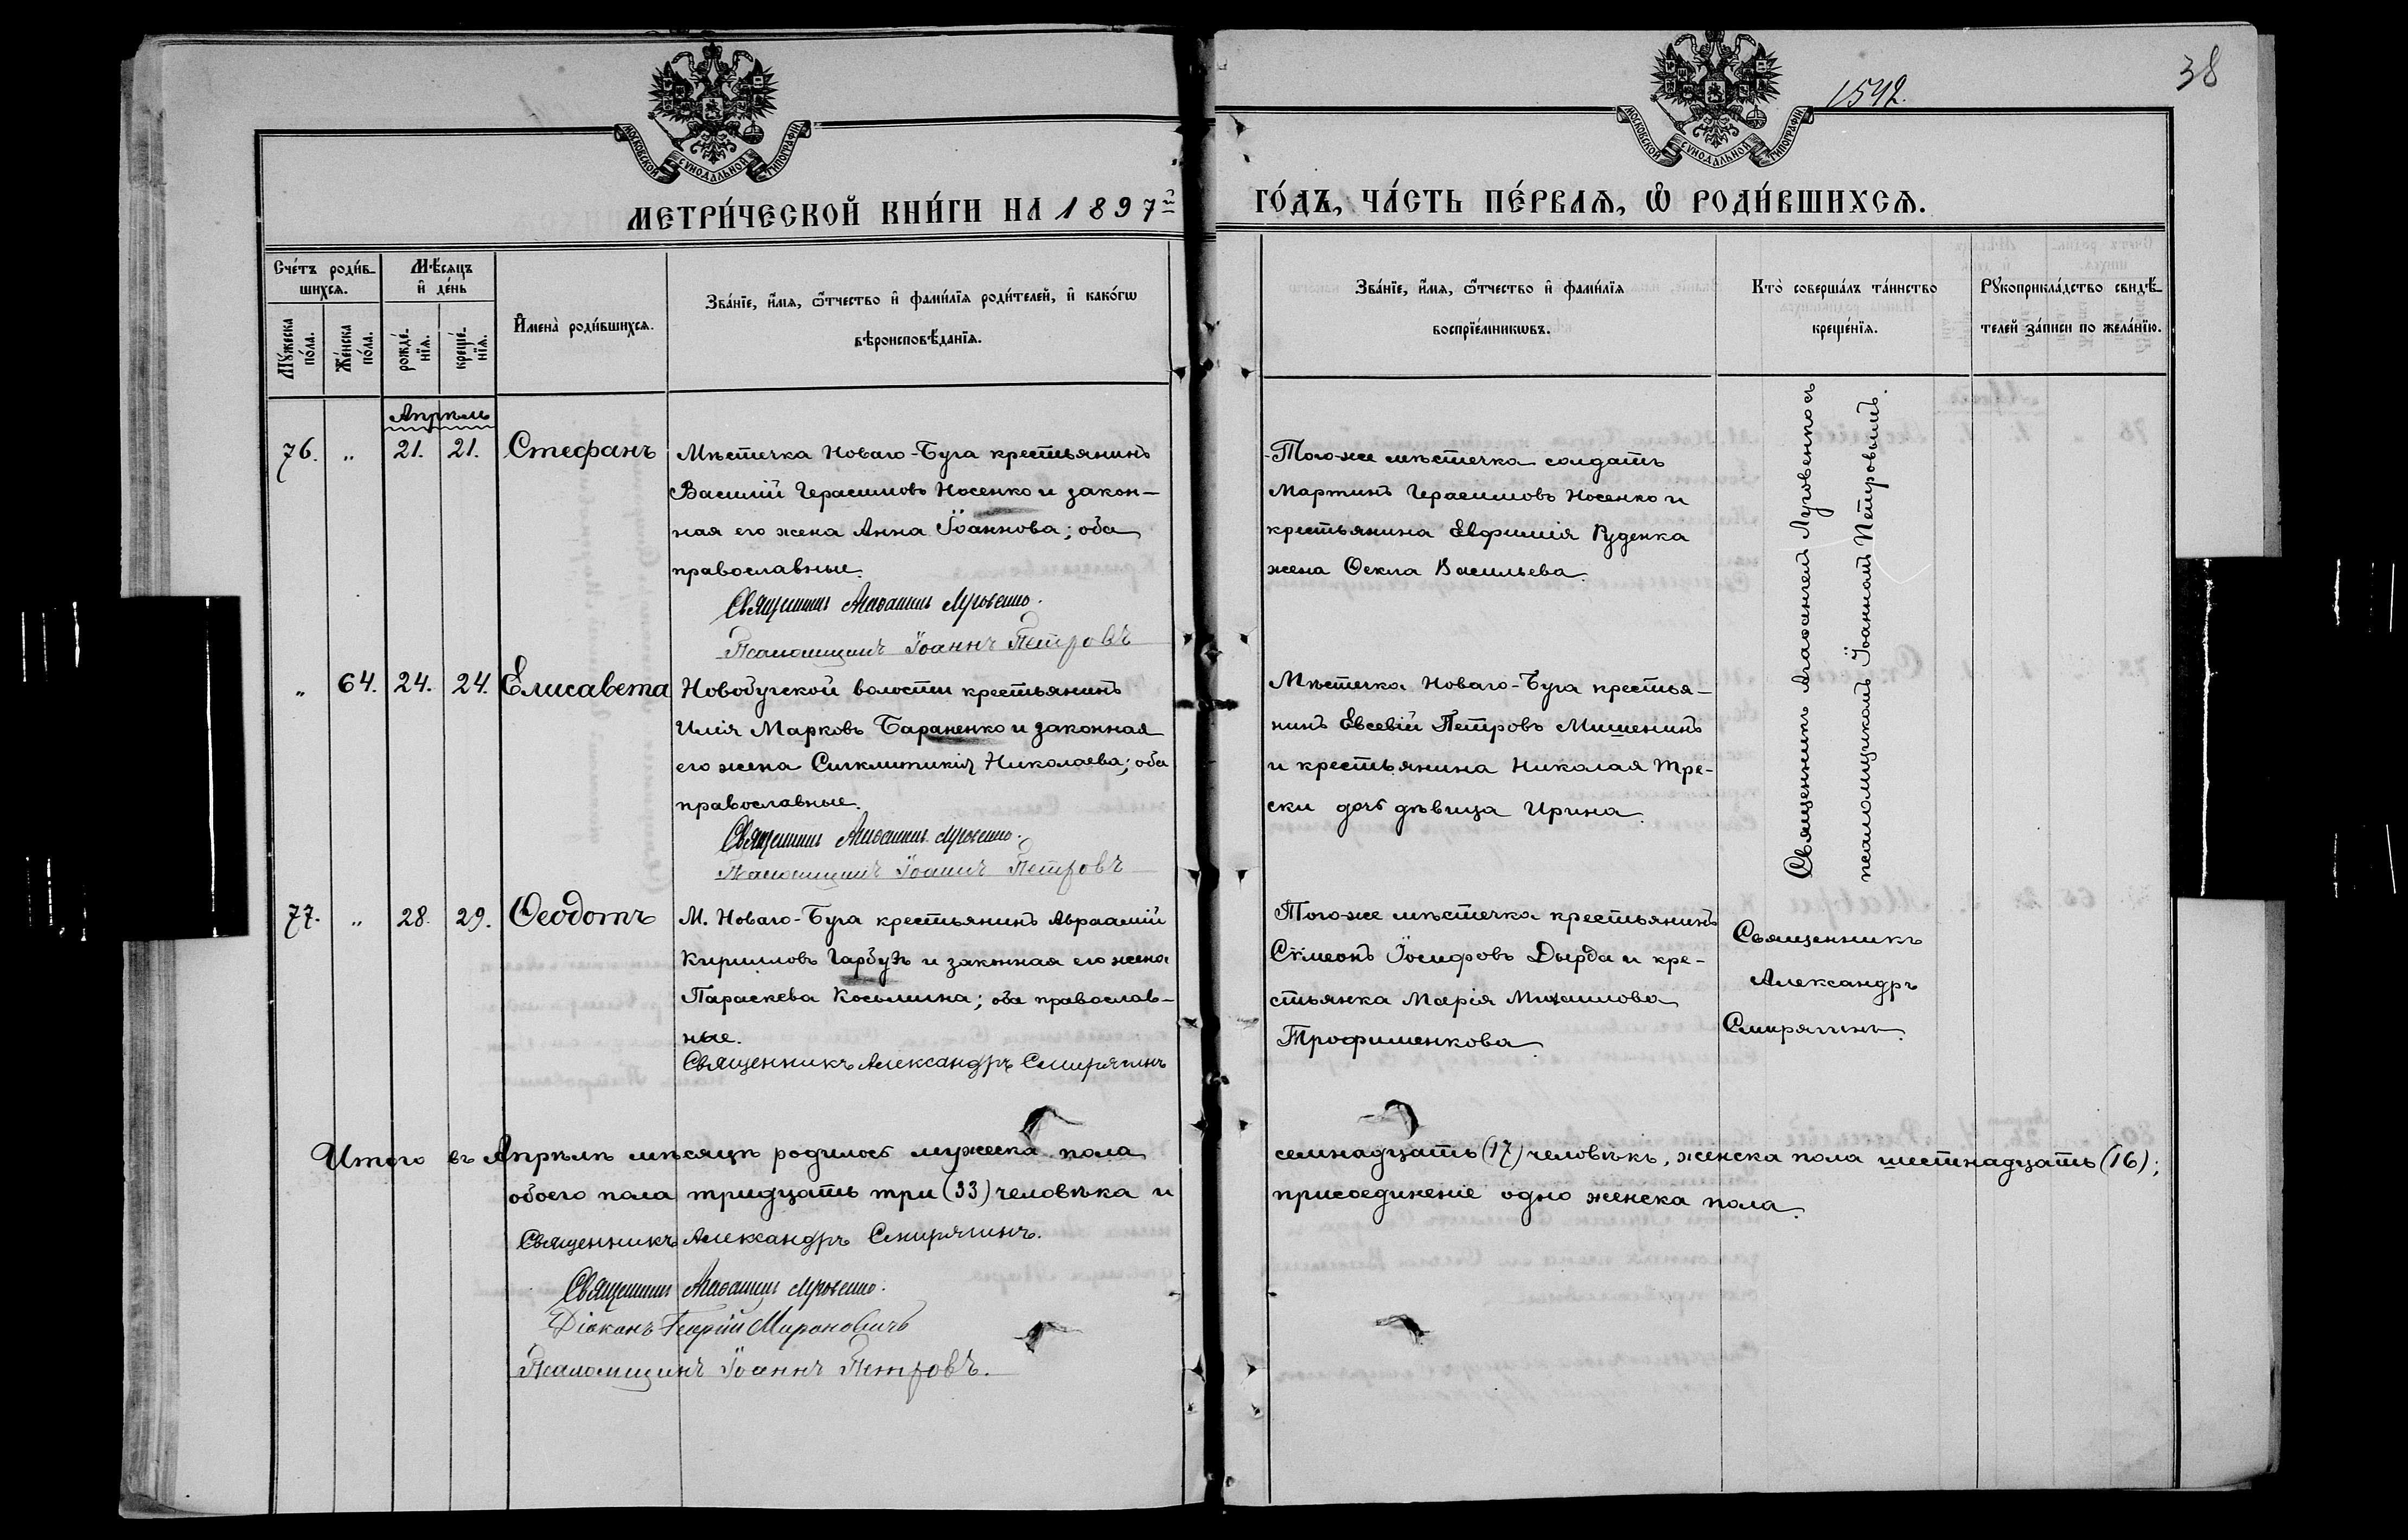 1542.
38
МОСКОВСКОЙ СУНОДАЛЬНОЙ ТИПОГРАФІИ
МОСКОВСКОЙ СУНОДАЛЬНОЙ ТИПОГРАФІИ
МЕТРИ́ЧЕСКОЙ КНИ́ГИ НА 1897й
ГО́ДЪ, ЧА́СТЬ ПЕ́РВАЯ, Ѡ РОДИ́ВШИХСЯ.
Сче́тъ роди́в-
шихся.
Мѣ́сяцъ
и де́нь
Мꙋ́жеска по́ла.
Же́нска по́ла.
рожде́-
нія.
креще́-
нія.
Имена̀ роди́вшихся.
Зва́ніе, и́мя, ѻ҆́тчество и фами́лія роди́телей, и како́гѡ
вѣроисповѣ́данія.
Зва́ніе, и́мя, ѻ҆́тчество и фами́лія
воспріе́мникѡвъ.
Кто̀ соверша́лъ та́инство
креще́нія.
Рꙋкоприкла́дство свидѣ́-
телей за́писи по жела́нію.
Апрѣль
76. „ 21. 21. Стефанъ
Мѣстечка Новаго-Буга крестьянинъ
Василій Герасимовъ Носенко и закон-
ная его жена Анна Іоаннова; оба
православные.
Священникъ Аѳанасій Луговенко.
Псаломщикъ Іоаннъ Петровъ
Того-же мѣстечка солдатъ
Мартинъ Герасимовъ Носенко и
крестьянина Евфимія Руденка
жена Ѳекла Васильева.
Священникъ Аѳанасій Луговенко съ
псаломщикомъ Іоанномъ Петровымъ.
„ 64. 24. 24. Елисавета
Новобугской волости крестьянинъ
Илія Марковъ Бараненко и законная
его жена Сигклитикія Николаева; оба
православные.
Священникъ Аѳанасій Луговенко.
Псаломщикъ Іоаннъ Петровъ
Мѣстечка Новаго-Буга крестья-
нинъ Евсевій Петровъ Мишенинъ
и крестьянина Николая Тре-
ски дочь дѣвица Ирина.
77. „ 28. 29. Ѳеодотъ
М. Новаго-Буга крестьянинъ Авраамій
Кирилловъ Гарбузъ и законная его жена
Параскева Косьмина; оба православ-
ные.
Священникъ Александръ Смирягинъ
Того-же мѣстечка крестьянинъ
Сѵмеонъ Іосифовъ Дырда и кре-
стьянка Марія Михаилова
Трофименкова.
Священникъ
Александръ
Смирягинъ.
Итого въ Апрѣлѣ мѣсяцѣ родилось мужеска пола
семнадцать (17) человѣкъ, женска пола шестнадцать (16);
обоего пола тридцать три (33) человѣка и
присоединеніе одно женска пола.
Священникъ Александръ Смирягинъ.
Священникъ Аѳанасій Луговенко.
Діаконъ Георгій Мироновичъ
Псаломщикъ Іоаннъ Петровъ.